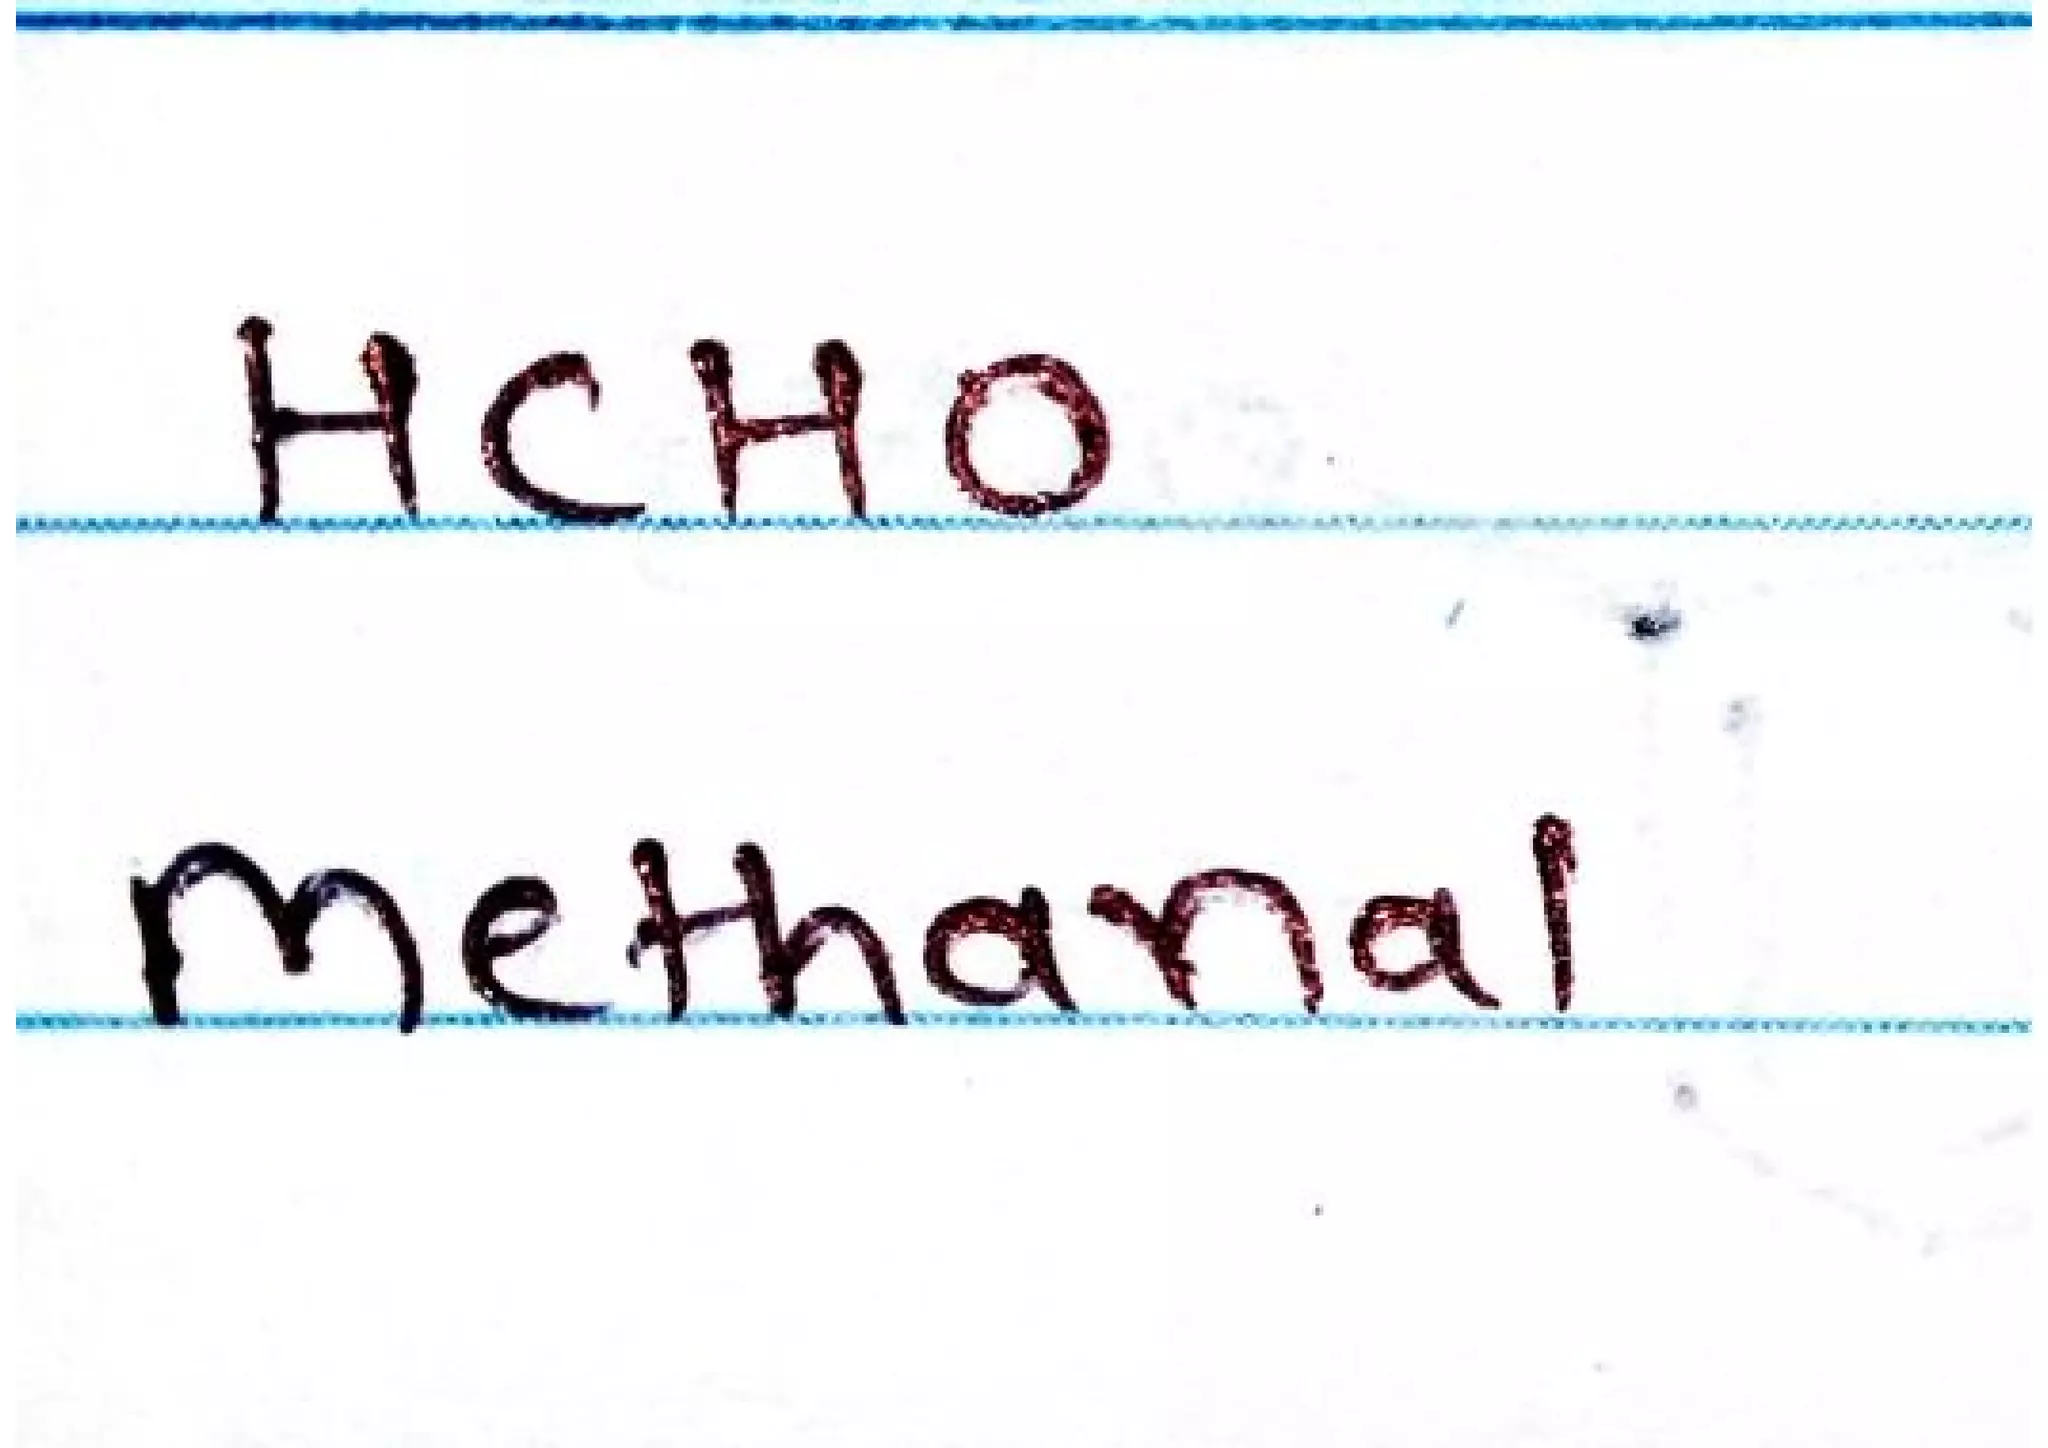 HCHO
Methanal